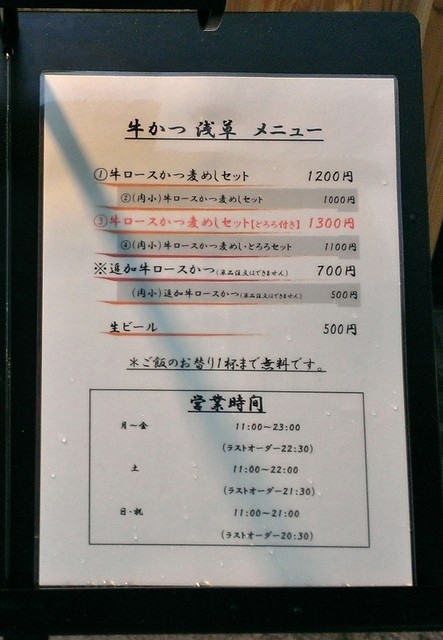 牛かつ 浅草 メニュー
①牛ロースかつ麦めしセット 1200円
②(肉小)牛ロースかつ麦めしセット 1000円
③牛ロースかつ麦めしセット[とろろ付き] 1300円
④(肉小)牛ロースかつ麦めし・とろろセット 1100円
※追加牛ロースかつ(単品注文はできません) 700円
(肉小)追加牛ロースかつ(単品注文はできません) 500円
生ビール 500円
※ご飯のお替り1杯まで無料です。
営業時間
月～金 11:00～23:00
(ラストオーダー22:30)
土 11:00～22:00
(ラストオーダー21:30)
日・祝 11:00～21:00
(ラストオーダー20:30)